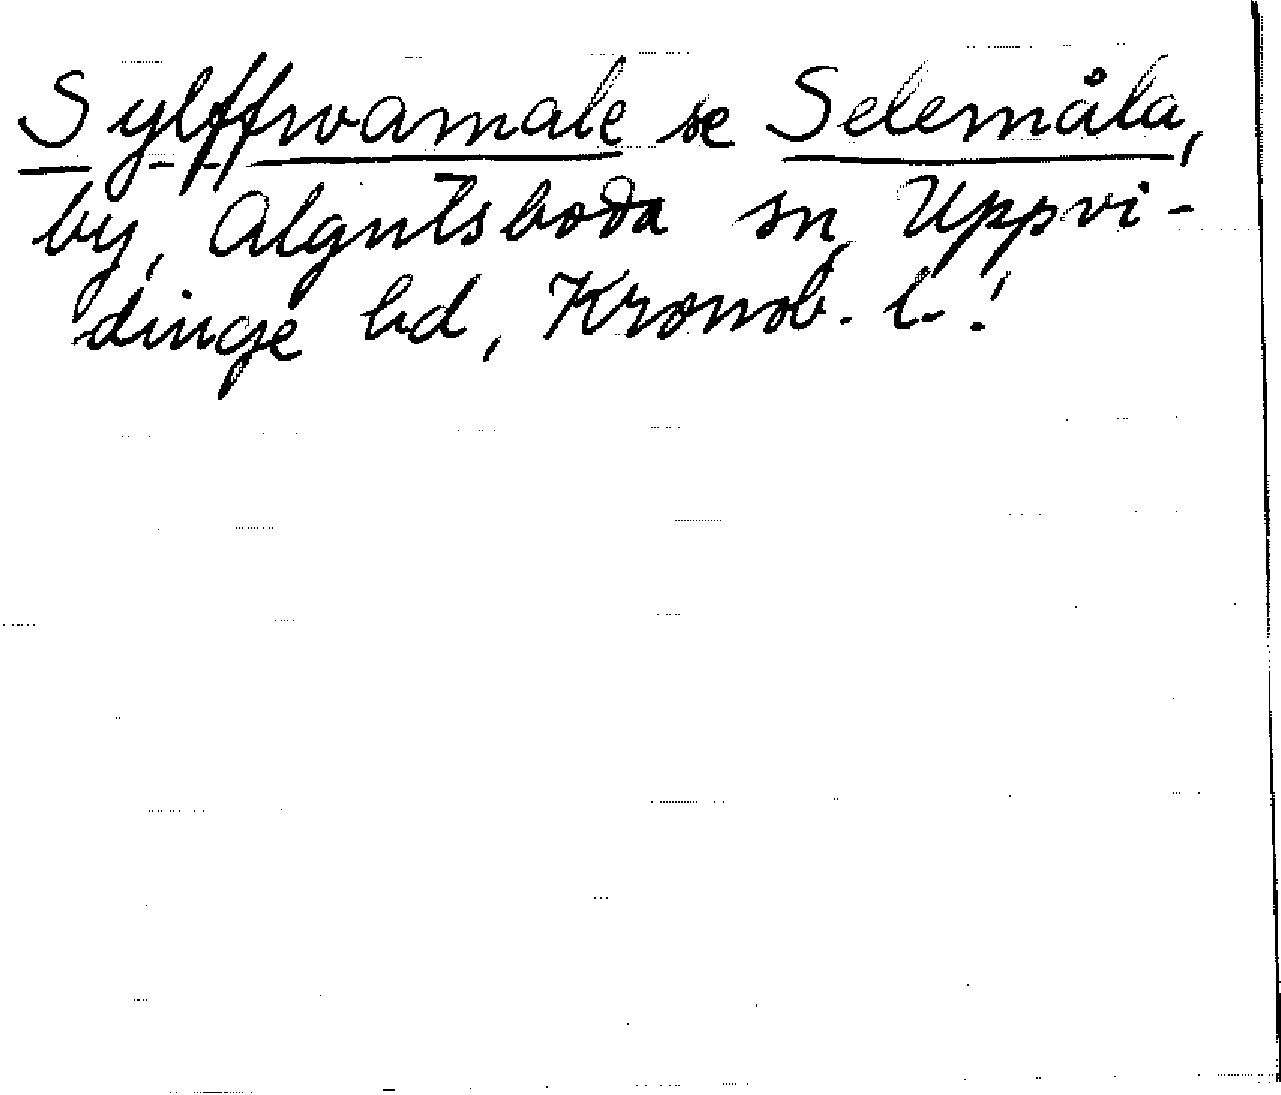 Sylffwamale se Selemåla,
by, Algutsboda sn, Uppvi-
dinge hd, Kronob. l.!